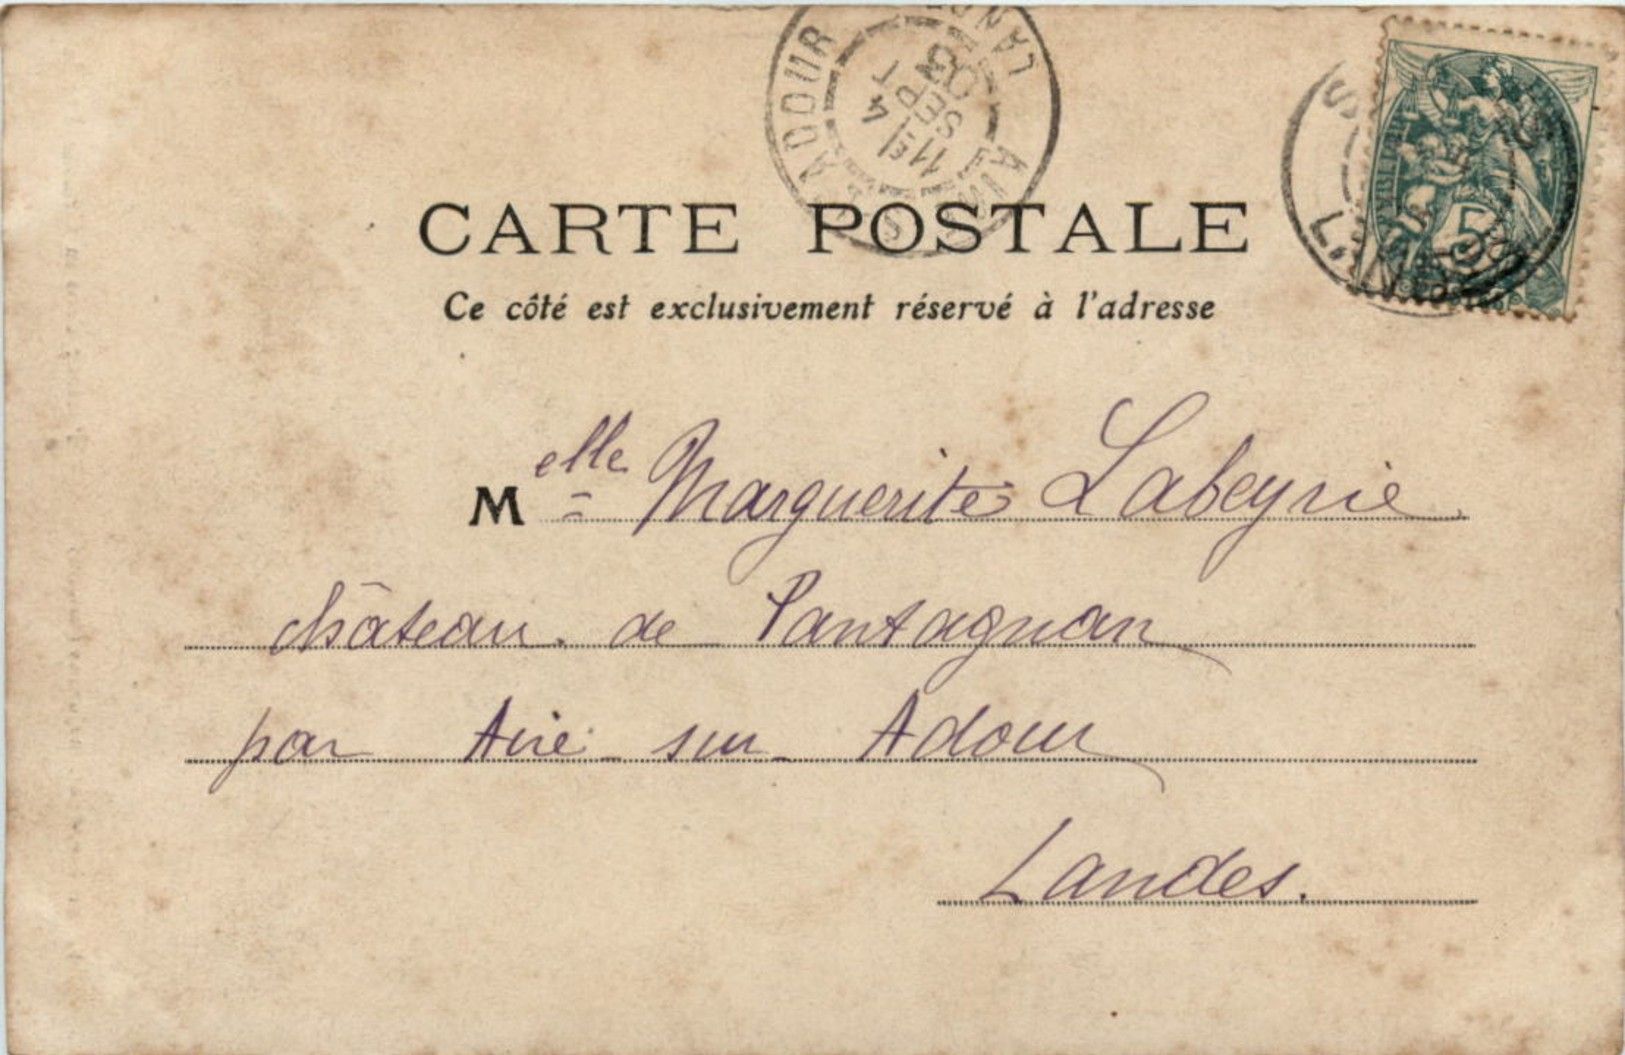 CARTE POSTALE
Ce côté est exclusivement réservé à l'adresse
Melle Marguerite Labeyrie
château de Pantagnan
par Aire sur Adour
Landes.
ADOUR
5